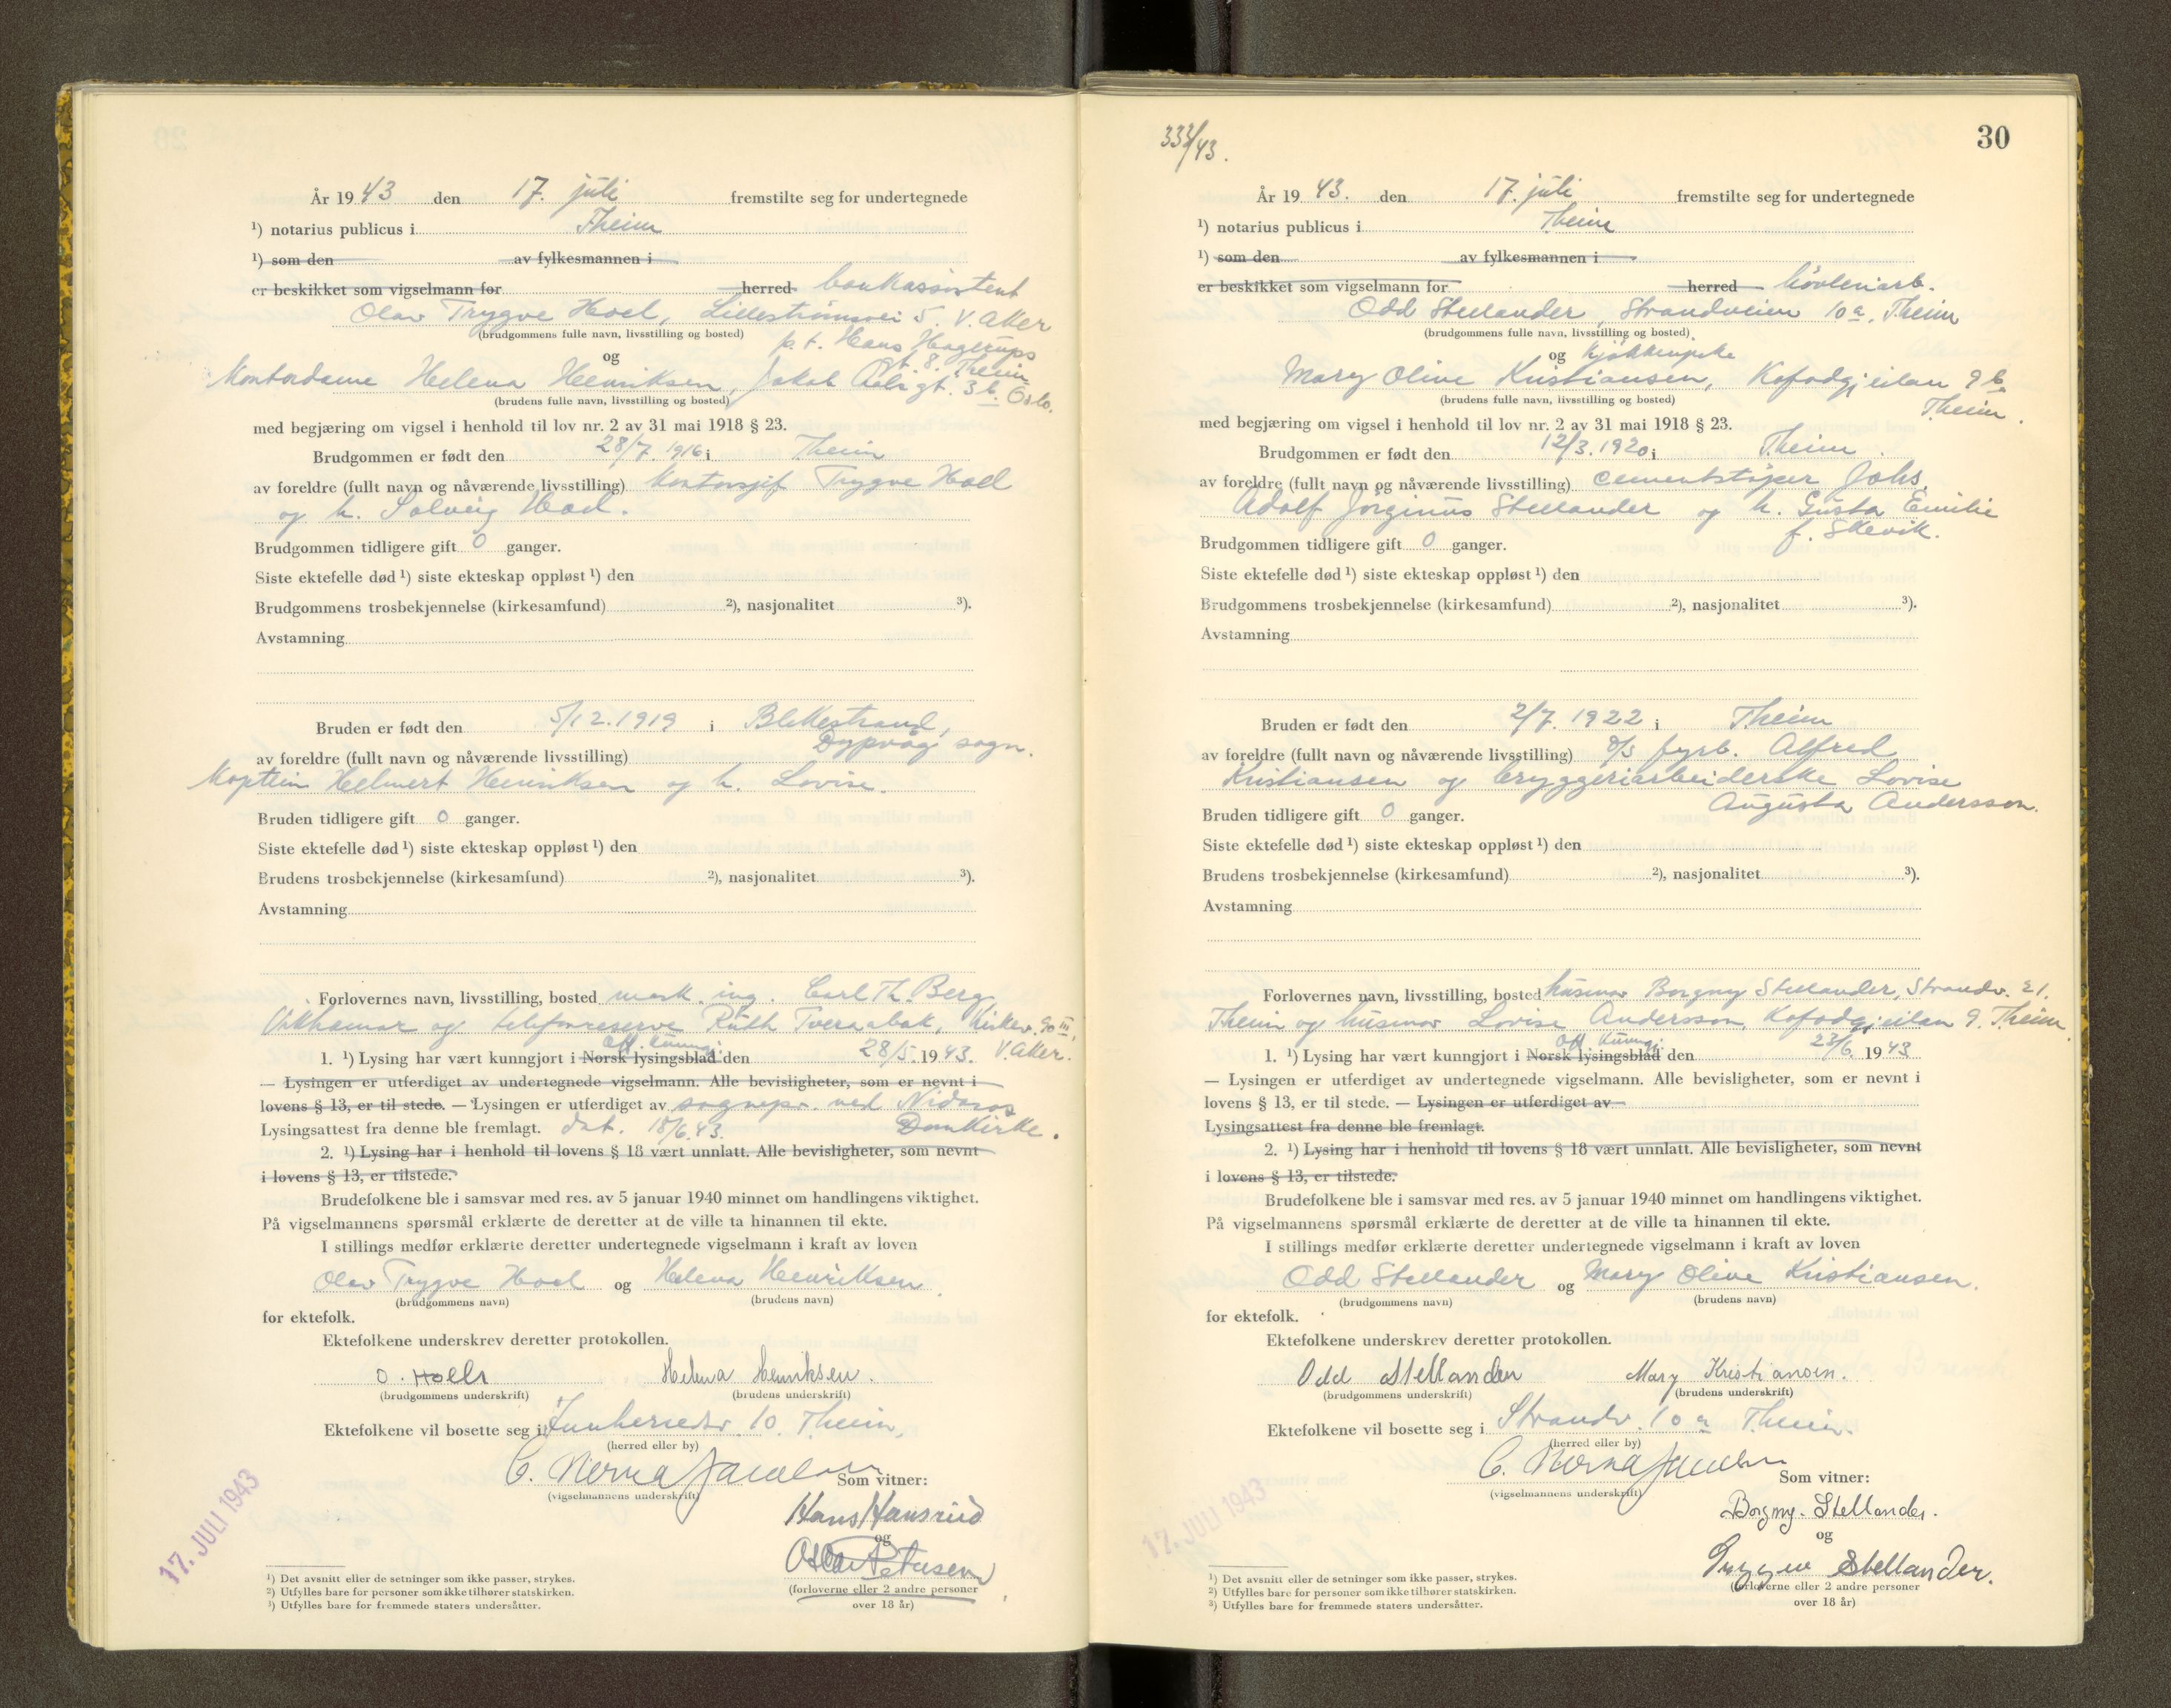 År 1943 den 17. juli fremstilte seg for undertegnede
¹) notarius publicus i Theim
¹) som den av fylkesmannen i
er beskikket som vigselmann for herred bankassistent
Olav Trygve Hoel, Lillestrømvei 5. V. Aker
(brudgommens fulle navn, livsstilling og bosted) p. t. Hans Hagerups
og gt. 8. Theim
Kontordame Helena Henriksen, Jakob Aalsgt. 3 b. Oslo.
(brudens fulle navn, livsstilling og bosted)
med begjæring om vigsel i henhold til lov nr. 2 av 31 mai 1918 § 23.
Brudgommen er født den 28/7. 1916 i Theim
av foreldre (fullt navn og nåværende livsstilling) Kontorsjef Trygve Hoel
og h. Solveig Hoel.
Brudgommen tidligere gift 0 ganger.
Siste ektefelle død ¹) siste ekteskap oppløst ¹) den
Brudgommens trosbekjennelse (kirkesamfund) ²), nasjonalitet ³).
Avstamning
Bruden er født den 5/12. 1919 i Blekestrand,
Dypvåg sogn.
av foreldre (fullt navn og nåværende livsstilling)
Kaptein Helmert Henriksen og h. Lovise.
Bruden tidligere gift 0 ganger.
Siste ektefelle død ¹) siste ekteskap oppløst ¹) den
Brudens trosbekjennelse (kirkesamfund) ²), nasjonalitet ³).
Avstamning
Forlovernes navn, livsstilling, bosted mask. ing. Carl Th. Berg,
og telefonreserve Ruth Tveraabak, Kirkev. 90 III,
V. Aker.
off. kunngj.
1. ¹) Lysing har vært kunngjort i Norsk lysingsblad den 28/5. 1943.
— Lysingen er utferdiget av undertegnede vigselmann. Alle bevisligheter, som er nevnt i
lovens § 13, er til stede. — Lysingen er utferdiget av sognepr. ved Nidaros
Lysingsattest fra denne ble fremlagt. dat. 18/6. 43. Domkirke.
2. ¹) Lysing har i henhold til lovens § 18 vært unnlatt. Alle bevisligheter, som nevnt
i lovens § 13, er tilstede.
Brudefolkene ble i samsvar med res. av 5 januar 1940 minnet om handlingens viktighet.
På vigselmannens spørsmål erklærte de deretter at de ville ta hinannen til ekte.
I stillings medfør erklærte deretter undertegnede vigselmann i kraft av loven
Olav Trygve Hoel og Helena Henriksen.
(brudgommens navn) (brudens navn)
for ektefolk.
Ektefolkene underskrev deretter protokollen.
O. Hoell Helena Henriksen.
(brudgommens underskrift) (brudens underskrift)
Ektefolkene vil bosette seg i Innherredsv. 10. Theim,
(herred eller by)
C. Som vitner:
(vigselmannens underskrift)
Hans Hansrud
og
Oscar Petersen
(forloverne eller 2 andre personer
over 18 år)
17. JULI 1943
¹) Det avsnitt eller de setninger som ikke passer, strykes.
²) Utfylles bare for personer som ikke tilhører statskirken.
³) Utfylles bare for fremmede staters undersåtter.
333/43.
30
År 1943. den 17. juli fremstilte seg for undertegnede
¹) notarius publicus i Theim
¹) som den av fylkesmannen i
er beskikket som vigselmann for herred høvleriarb.
Odd Stellander, Strandveien 10 a, Theim
(brudgommens fulle navn, livsstilling og bosted)
og kjøkkenpike
Mary Olive Kristiansen, Kofodgjeilan 9 b
(brudens fulle navn, livsstilling og bosted) Theim.
med begjæring om vigsel i henhold til lov nr. 2 av 31 mai 1918 § 23.
Brudgommen er født den 12/3. 1920 i Theim.
av foreldre (fullt navn og nåværende livsstilling) cementstøper Johs.
Adolf Jørginus Stellander og h. Gusta Emilie
f. Skevik.
Brudgommen tidligere gift 0 ganger.
Siste ektefelle død ¹) siste ekteskap oppløst ¹) den
Brudgommens trosbekjennelse (kirkesamfund) ²), nasjonalitet ³).
Avstamning
Bruden er født den 2/7. 1922 i Theim
av foreldre (fullt navn og nåværende livsstilling) d/s fyrb. Alfred
Kristiansen og bryggeriarbeiderske Lovise
Augusta Andersson.
Bruden tidligere gift 0 ganger.
Siste ektefelle død ¹) siste ekteskap oppløst ¹) den
Brudens trosbekjennelse (kirkesamfund) ²), nasjonalitet ³).
Avstamning
Forlovernes navn, livsstilling, bosted husmor Borgny Stellander, Strandv. 21.
Theim og husmor Lovise Andersson, Kofodgjeilan 9. Theim.
off. kunngj.
1. ¹) Lysing har vært kunngjort i Norsk lysingsblad den 23/6. 1943
— Lysingen er utferdiget av undertegnede vigselmann. Alle bevisligheter, som er nevnt i
lovens § 13, er til stede. — Lysingen er utferdiget av
Lysingsattest fra denne ble fremlagt.
2. ¹) Lysing har i henhold til lovens § 18 vært unnlatt. Alle bevisligheter, som nevnt
i lovens § 13, er tilstede.
Brudefolkene ble i samsvar med res. av 5 januar 1940 minnet om handlingens viktighet.
På vigselmannens spørsmål erklærte de deretter at de ville ta hinannen til ekte.
I stillings medfør erklærte deretter undertegnede vigselmann i kraft av loven
Odd Stellander og Mary Olive Kristiansen.
(brudgommens navn) (brudens navn)
for ektefolk.
Ektefolkene underskrev deretter protokollen.
Odd Stellander Mary Kristiansen.
(brudgommens underskrift) (brudens underskrift)
Ektefolkene vil bosette seg i Strandv. 10 a Theim.
(herred eller by)
C. Som vitner:
(vigselmannens underskrift)
Borgny. Stellander.
og
Stellander.
(forloverne eller 2 andre personer
over 18 år)
17. JULI 1943
¹) Det avsnitt eller de setninger som ikke passer, strykes.
²) Utfylles bare for personer som ikke tilhører statskirken.
³) Utfylles bare for fremmede staters undersåtter.